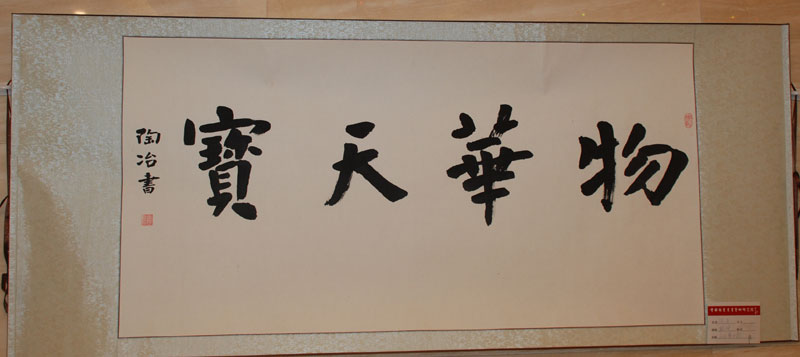 物華天寶
陶冶書